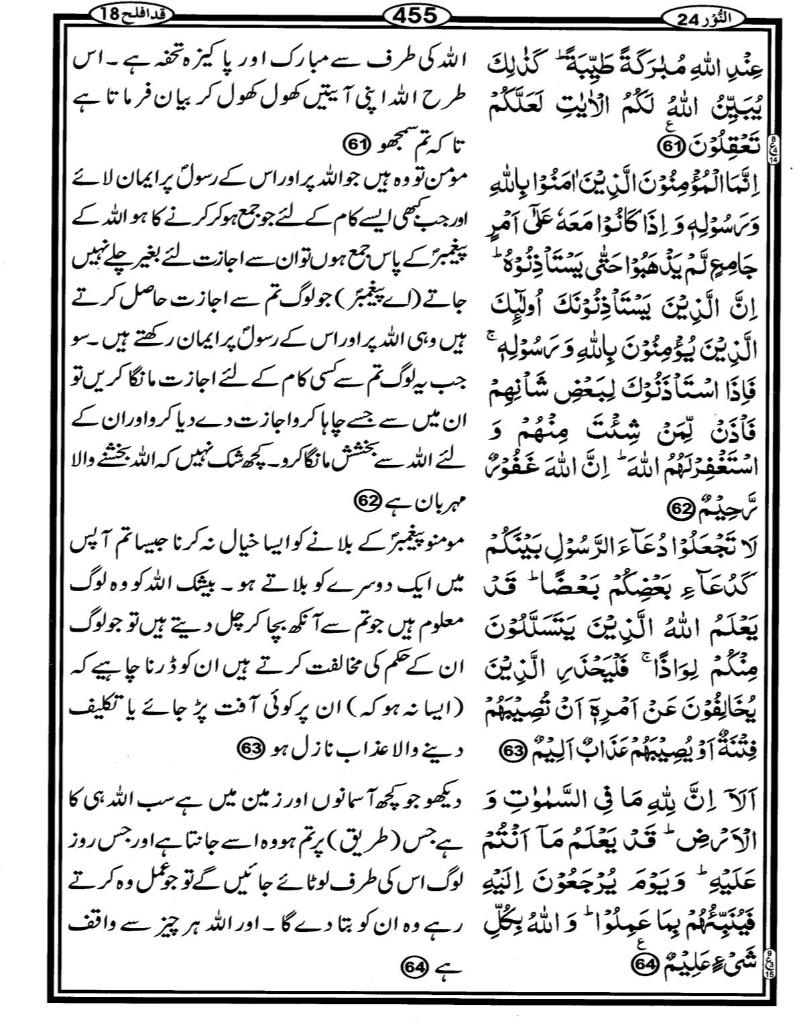 النُّوْر 24
455
قد افلح 18
عِنْدِ اللّٰهِ مُبٰرَكَةً طَيِّبَةً ؕ كَذٰلِكَ
يُبَيِّنُ اللّٰهُ لَكُمُ الْاٰيٰتِ لَعَلَّكُمْ
تَعْقِلُوْنَ ﴿61﴾
اِنَّمَا الْمُؤْمِنُوْنَ الَّذِيْنَ اٰمَنُوْا بِاللّٰهِ
وَرَسُوْلِهٖ وَ اِذَا كَانُوْا مَعَهٗ عَلٰٓى اَمْرٍ
جَامِعٍ لَّمْ يَذْهَبُوْا حَتّٰى يَسْتَاْذِنُوْهُ ؕ
اِنَّ الَّذِيْنَ يَسْتَاْذِنُوْنَكَ اُولٰٓئِكَ
الَّذِيْنَ يُؤْمِنُوْنَ بِاللّٰهِ وَ رَسُوْلِهٖ ۚ
فَاِذَا اسْتَاْذَنُوْكَ لِبَعْضِ شَاْنِهِمْ
فَاْذَنْ لِّمَنْ شِئْتَ مِنْهُمْ وَ
اسْتَغْفِرْ لَهُمُ اللّٰهَ ؕ اِنَّ اللّٰهَ غَفُوْرٌ
رَّحِيْمٌ ﴿62﴾
لَا تَجْعَلُوْا دُعَآءَ الرَّسُوْلِ بَيْنَكُمْ
كَدُعَآءِ بَعْضِكُمْ بَعْضًا ؕ قَدْ
يَعْلَمُ اللّٰهُ الَّذِيْنَ يَتَسَلَّلُوْنَ
مِنْكُمْ لِوَاذًا ۚ فَلْيَحْذَرِ الَّذِيْنَ
يُخَالِفُوْنَ عَنْ اَمْرِهٖٓ اَنْ تُصِيْبَهُمْ
فِتْنَةٌ اَوْ يُصِيْبَهُمْ عَذَابٌ اَلِيْمٌ ﴿63﴾
اَلَاۤ اِنَّ لِلّٰهِ مَا فِى السَّمٰوٰتِ وَ
الْاَرْضِ ؕ قَدْ يَعْلَمُ مَاۤ اَنْتُمْ
عَلَيْهِ ؕ وَ يَوْمَ يُرْجَعُوْنَ اِلَيْهِ
فَيُنَبِّئُهُمْ بِمَا عَمِلُوْا ؕ وَ اللّٰهُ بِكُلِّ
شَىْءٍ عَلِيْمٌ ﴿64﴾
اللہ کی طرف سے مبارک اور پاکیزہ تحفہ ہے ۔ اس
طرح اللہ اپنی آیتیں کھول کھول کر بیان فرماتا ہے
تاکہ تم سمجھو ﴿61﴾
مومن تو وہ ہیں جو اللہ پر اور اس کے رسولؐ پر ایمان لائے
اور جب کبھی ایسے کام کے لئے جو جمع ہو کر کرنے کا ہو اللہ کے
پیغمبرؐ کے پاس جمع ہوں تو ان سے اجازت لئے بغیر چلے نہیں
جاتے (اے پیغمبرؐ) جو لوگ تم سے اجازت حاصل کرتے
ہیں وہی اللہ پر اور اس کے رسولؐ پر ایمان رکھتے ہیں ۔ سو
جب یہ لوگ تم سے کسی کام کے لئے اجازت مانگا کریں تو
ان میں سے جسے چاہا کرو اجازت دے دیا کرو اور ان کے
لئے اللہ سے بخشش مانگا کرو ۔ کچھ شک نہیں کہ اللہ بخشنے والا
مہربان ہے ﴿62﴾
مومنو پیغمبرؐ کے بلانے کو ایسا خیال نہ کرنا جیسا تم آپس
میں ایک دوسرے کو بلاتے ہو ۔ بیشک اللہ کو وہ لوگ
معلوم ہیں جو تم سے آنکھ بچا کر چل دیتے ہیں تو جو لوگ
ان کے حکم کی مخالفت کرتے ہیں ان کو ڈرنا چاہیے کہ
(ایسا نہ ہو کہ) ان پر کوئی آفت پڑ جائے یا تکلیف
دینے والا عذاب نازل ہو ﴿63﴾
دیکھو جو کچھ آسمانوں اور زمین میں ہے سب اللہ ہی کا
ہے جس (طریق) پر تم ہو وہ اسے جانتا ہے اور جس روز
لوگ اس کی طرف لوٹائے جائیں گے تو جو عمل وہ کرتے
رہے وہ ان کو بتا دے گا ۔ اور اللہ ہر چیز سے واقف
ہے ﴿64﴾